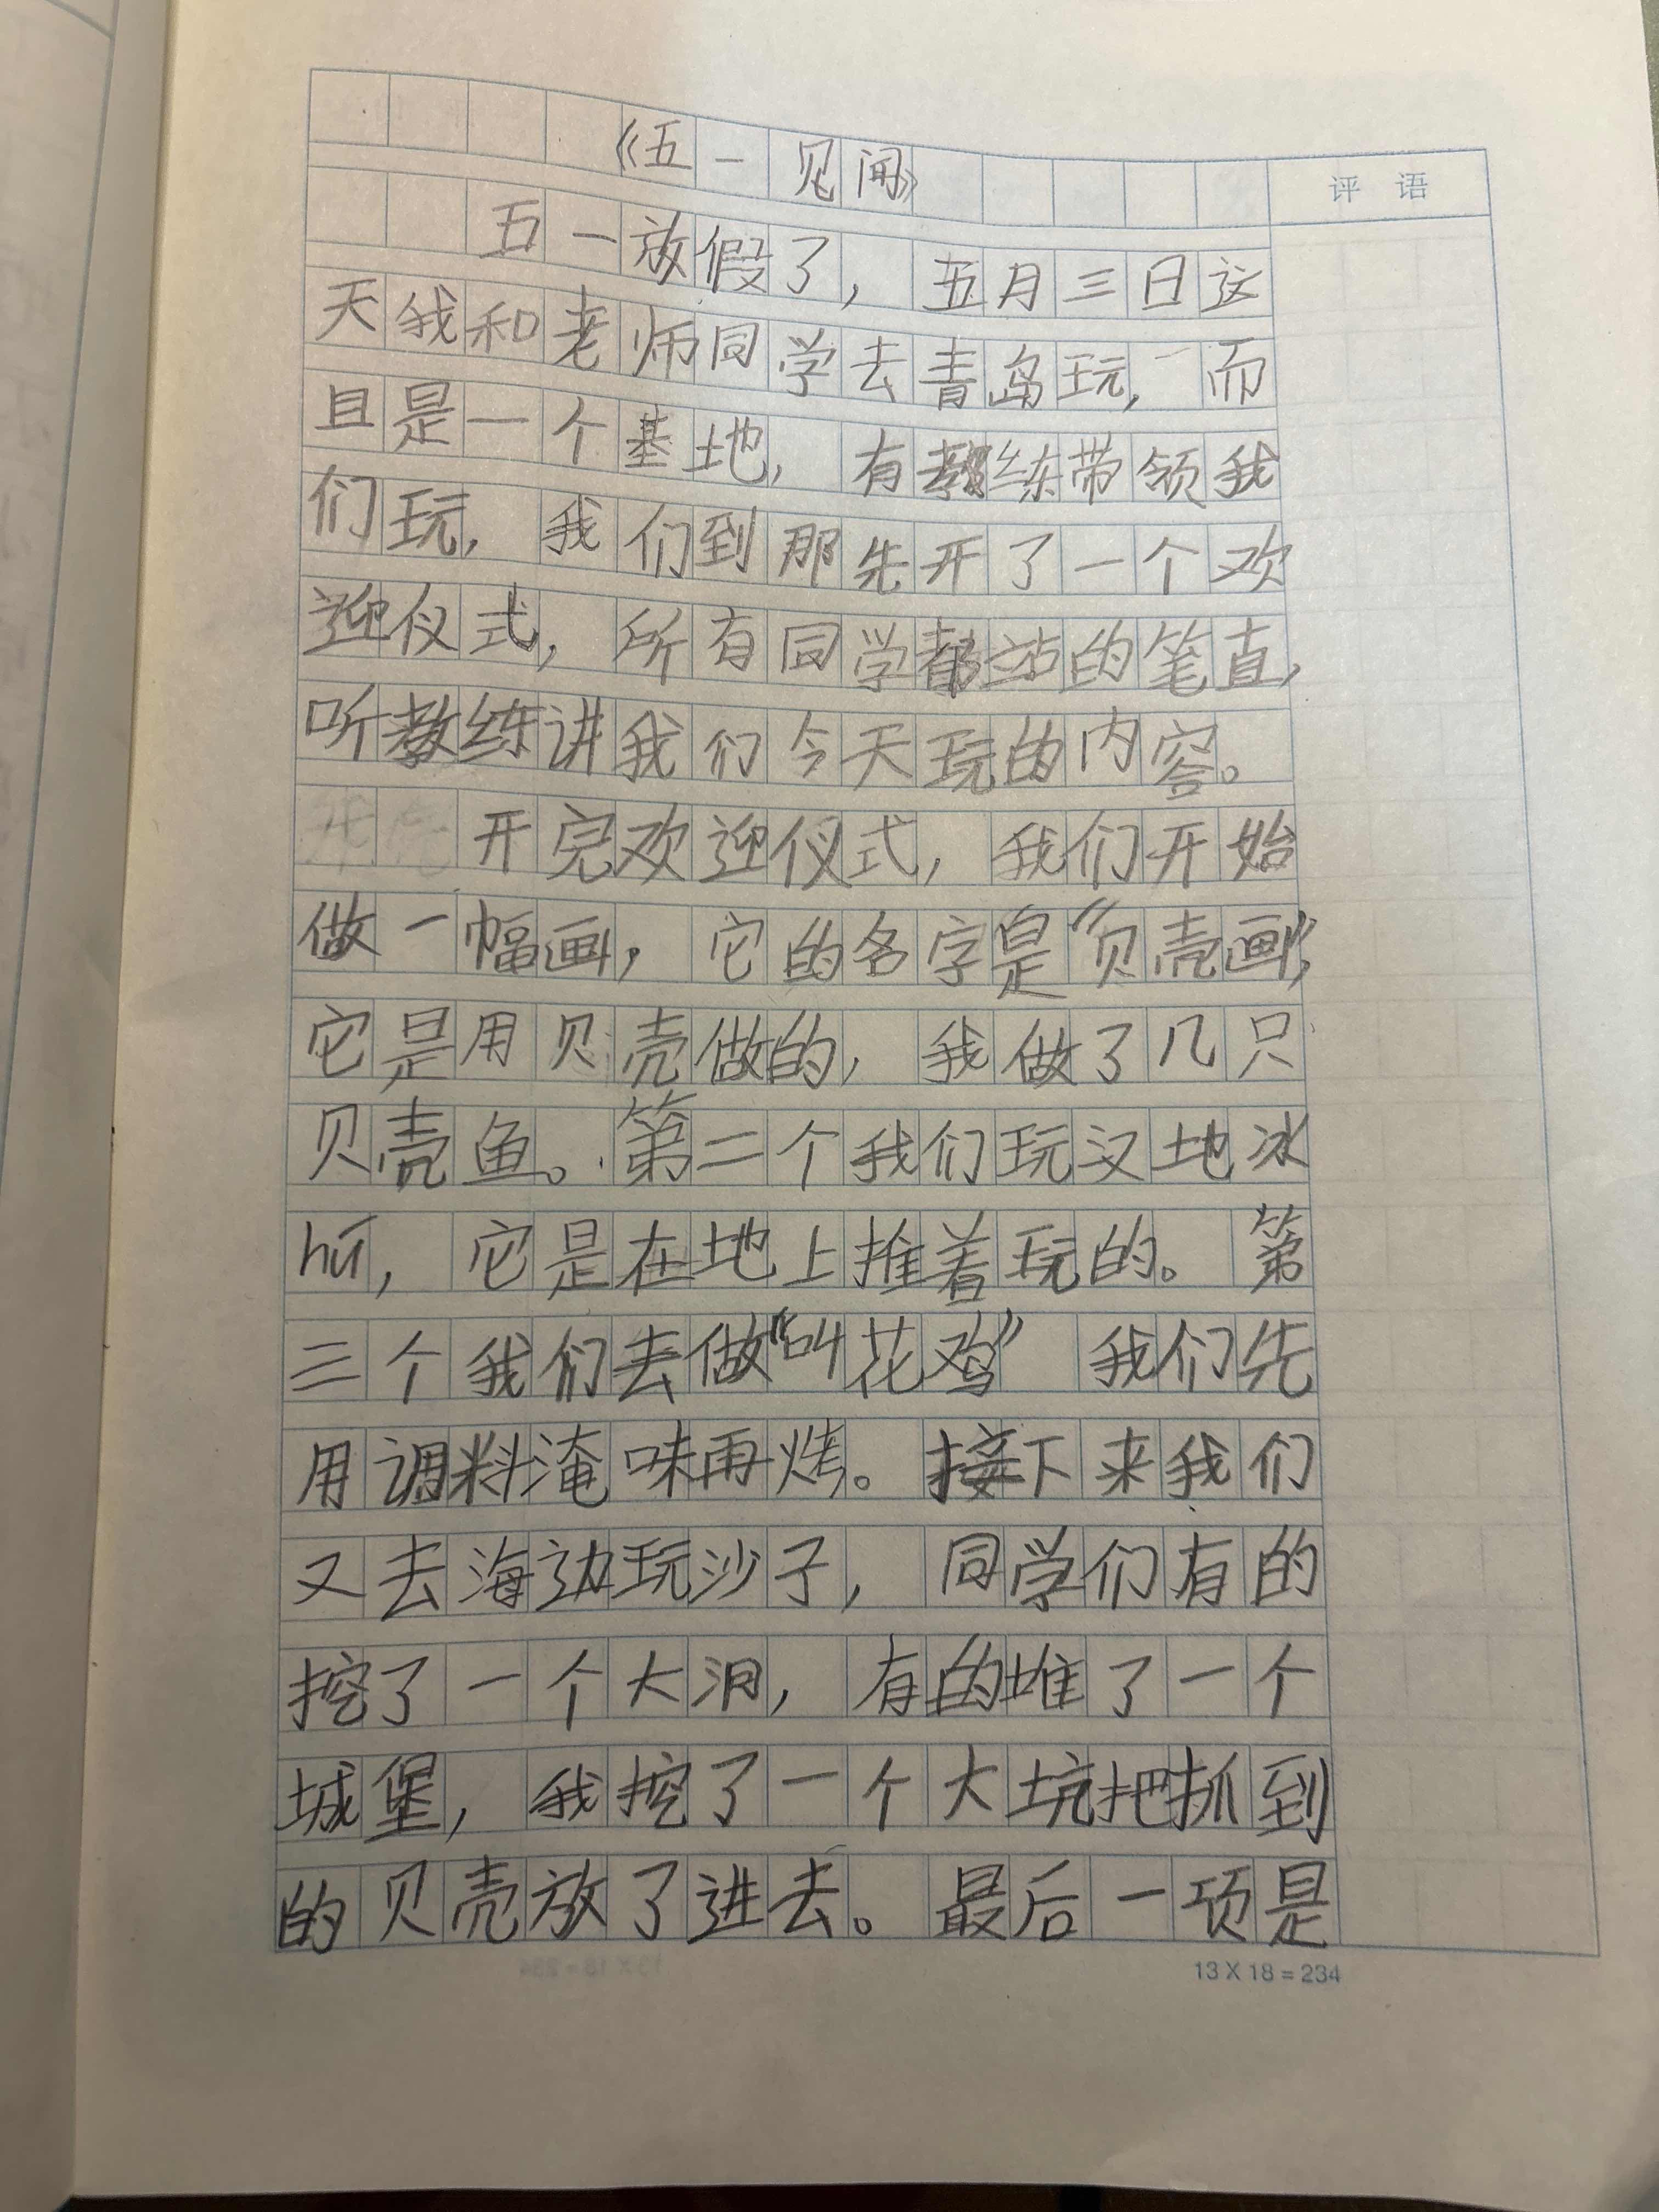 《五一见闻》
评语
五一放假了，五月三日这
天我和老师同学去青岛玩，而
且是一个基地，有教练带领我
们玩，我们到那先开了一个欢
迎仪式，所有同学都站的笔直，
听教练讲我们今天玩的内容。
开完欢迎仪式，我们开始
做一幅画，它的名字是“贝壳画”，
它是用贝壳做的，我做了几只
贝壳鱼。第二个我们玩汉地冰
hú，它是在地上推着玩的。第
三个我们去做“叫花鸡”我们先
用调料淹味再烤。接下来我们
又去海边玩沙子，同学们有的
挖了一个大洞，有的堆了一个
城堡，我挖了一个大坑把抓到
的贝壳放了进去。最后一项是
13 X 18 = 234